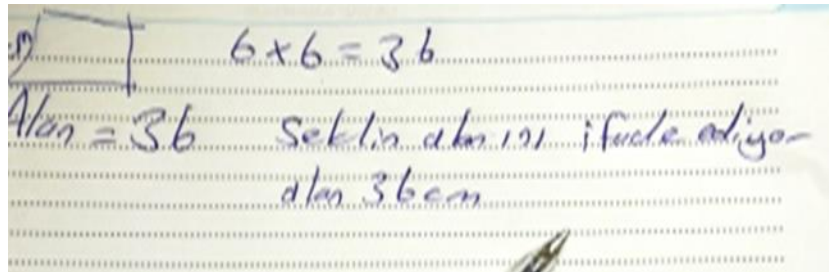 6 x 6 = 36
Alan = 36 Seklin alanını ifade ediyor
alan 36 cm